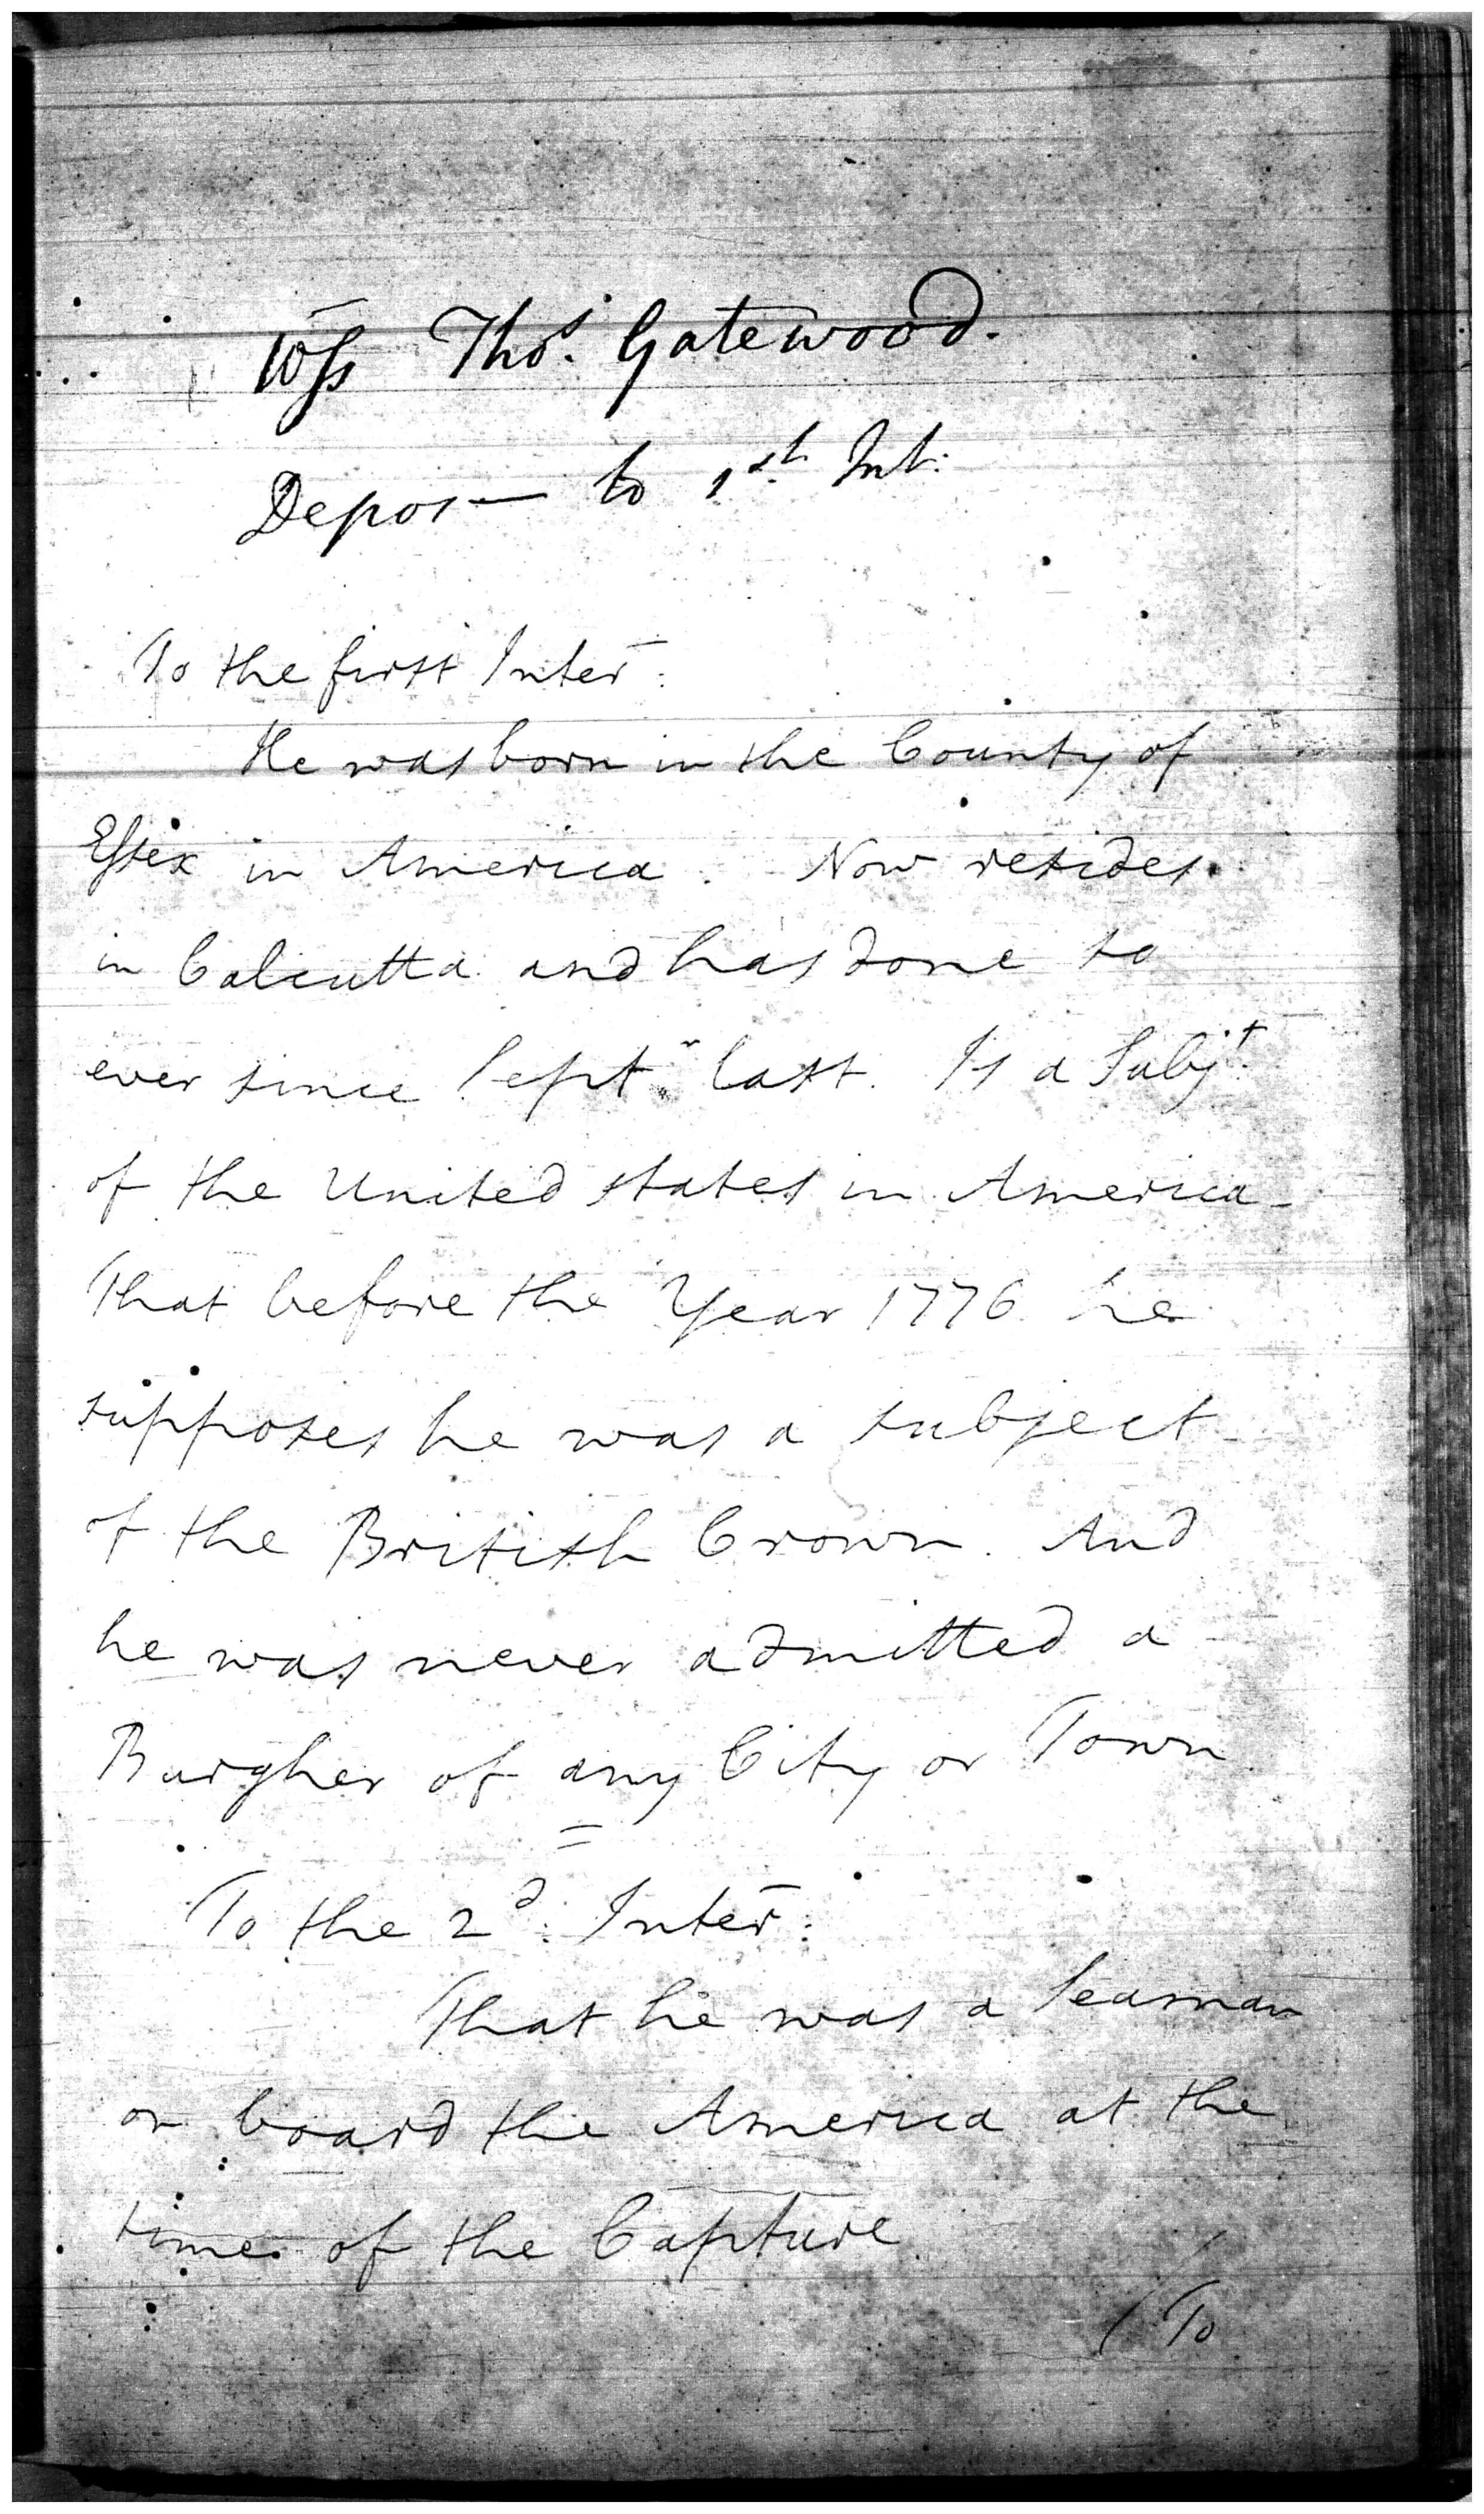 Wss Thos. Gatewood.
Depos— to 1st. Int:
To the first Inter:
He was born in the County of
Essex in America. Now resides
in Calcutta and has done so
ever since Septr last. Is a Subjt.
of the United states in America
That before the Year 1776 he
supposes he was a subject
of the British Crown. And
he was never admitted a
Burgher of any City or Town
To the 2d: Inter:
That he was a Seaman
on board the America at the
time of the Capture
(To